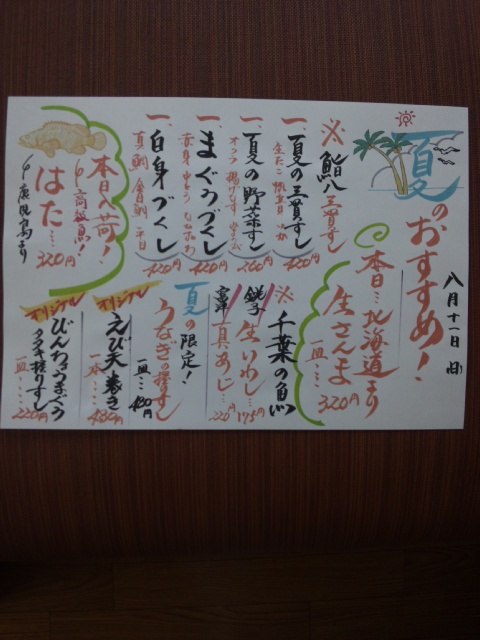 八月十一日
夏のおすすめ!
本日…北海道より
生さんま
一皿…320円
※鮨八三貫すし
一、夏の三貫すし
420円
一、夏の野菜すし
オクラ
260円
一、まぐろづくし
420円
一、白身づくし
真鯛
420円
本日入荷!
高級魚!!
はた…320円
鹿児島より
※千葉の魚
銚子
生いわし…175円
富津
真あじ…220円
夏の限定!
うなぎの握すし
一皿…480円
オリジナル
えび天巻き
一本…480円
オリジナル
びんちょうまぐろ
タタキ握りすし
一皿…220円